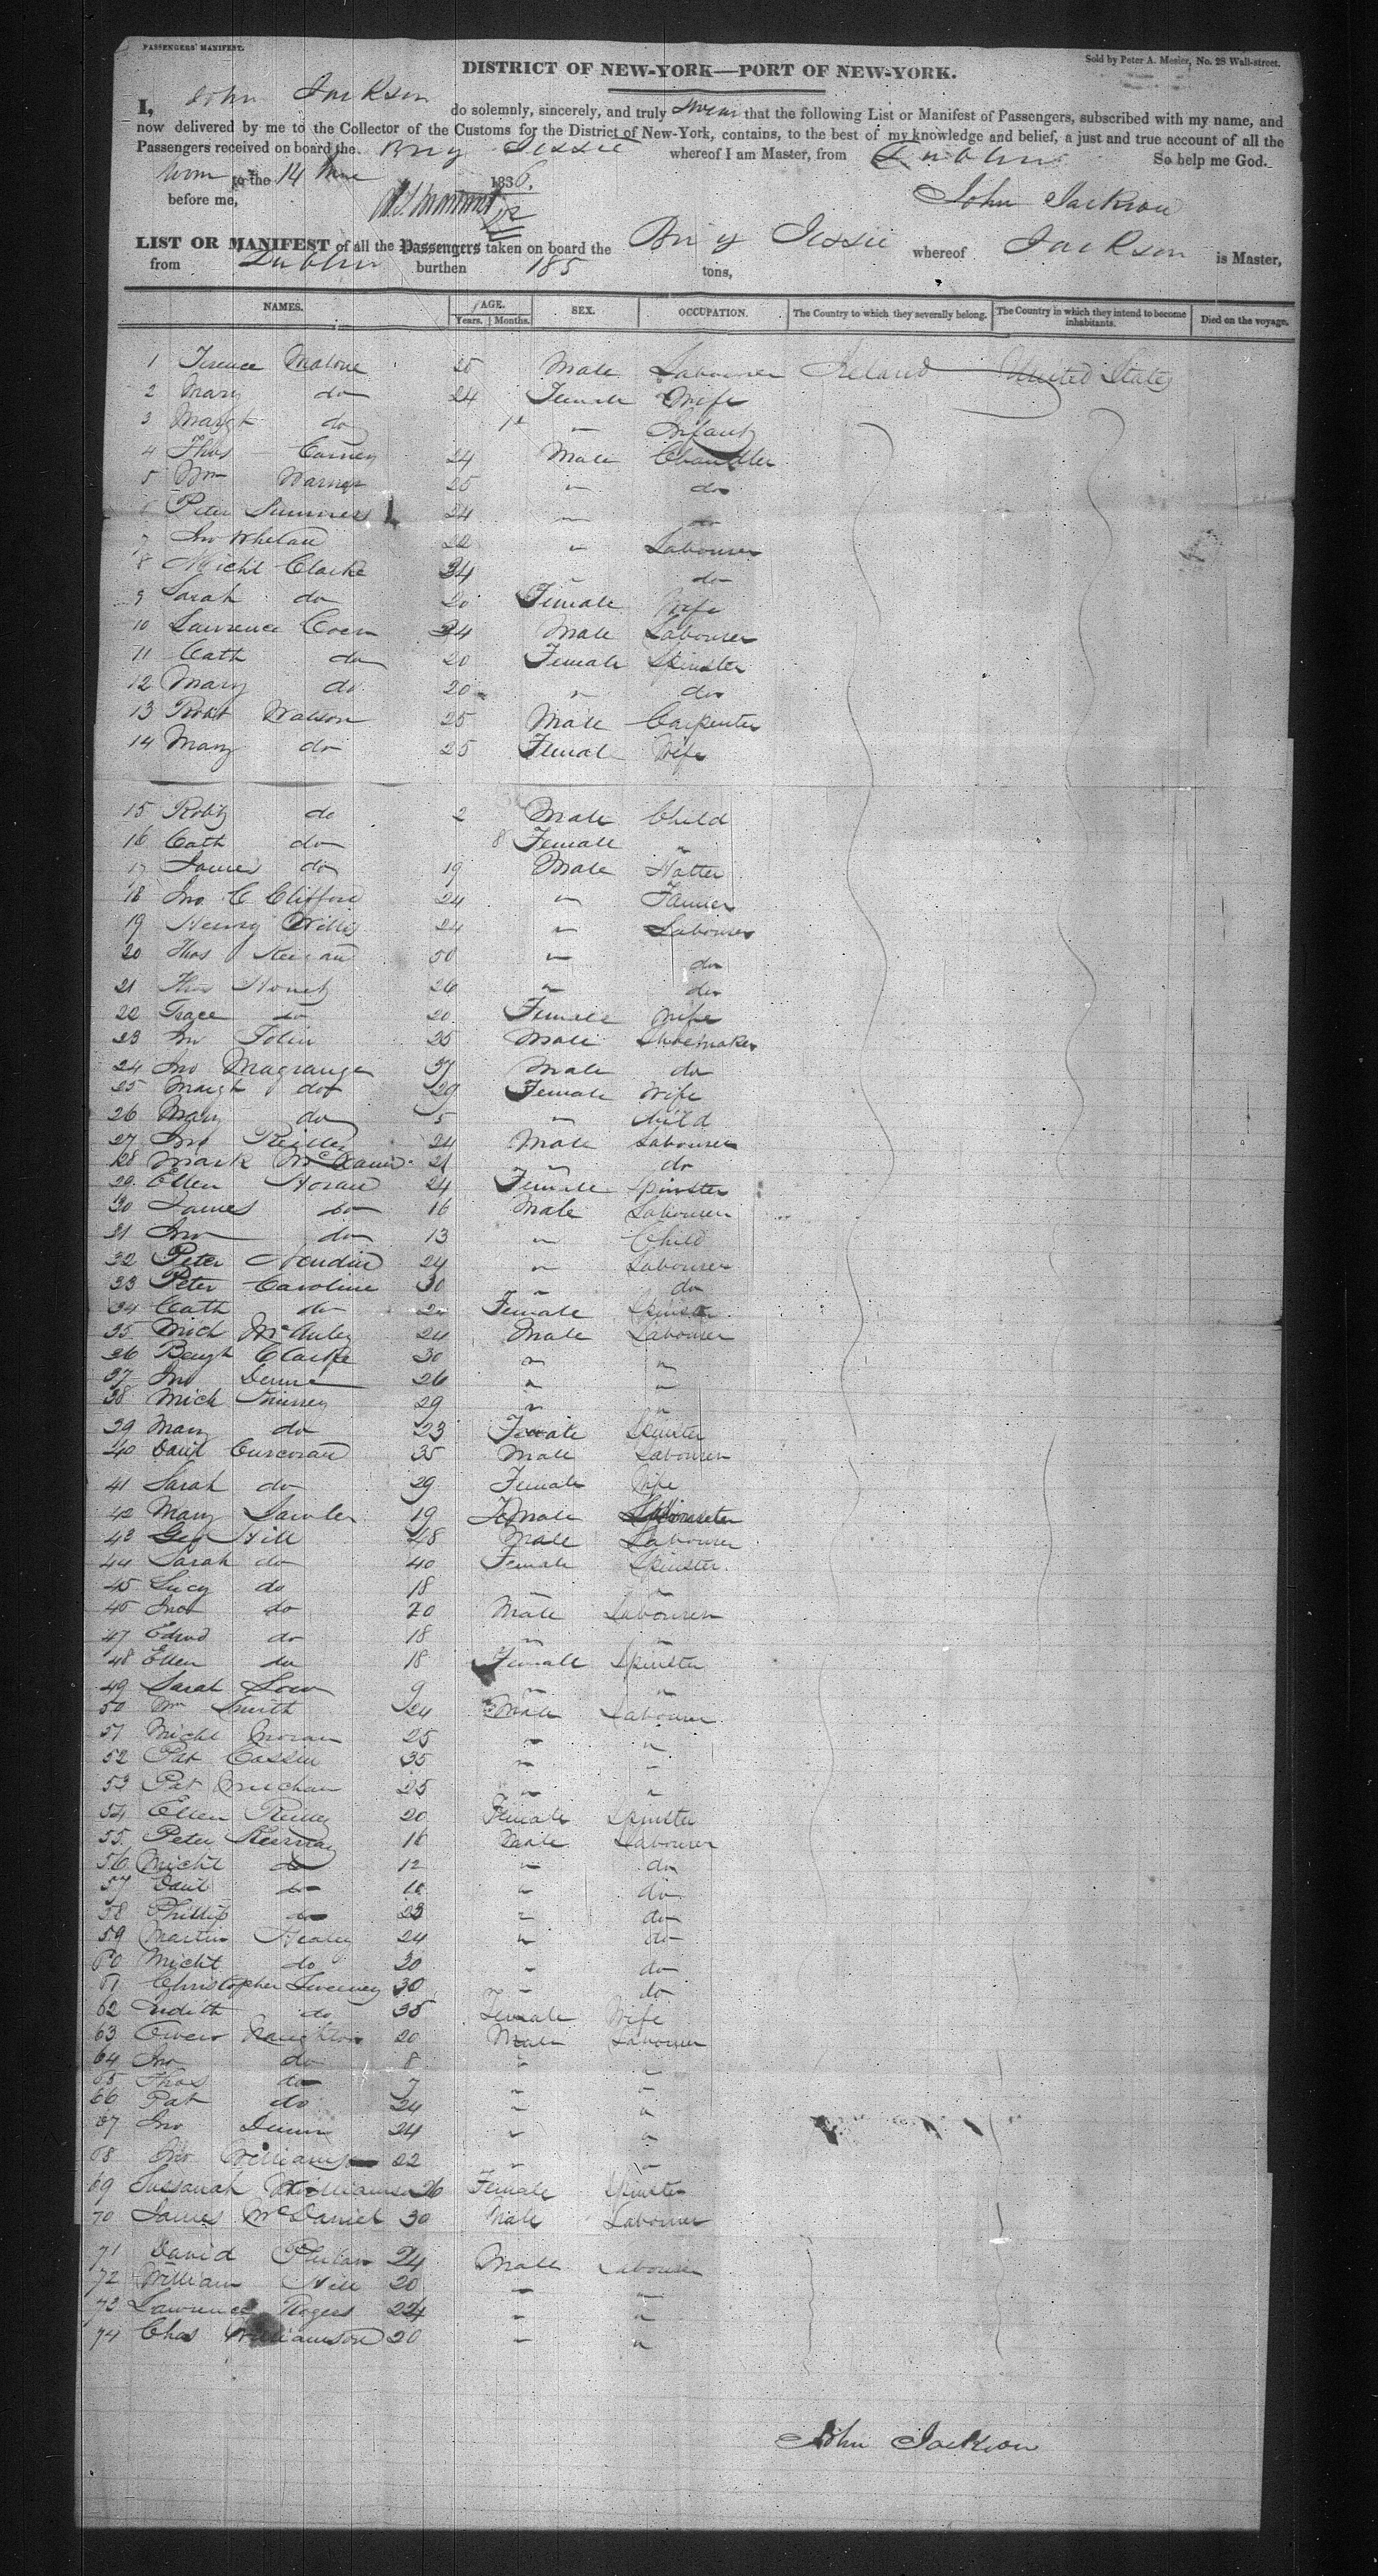 PASSENGERS' MANIFEST.
Sold by Peter A. Mesier, No. 28 Wall-street.
DISTRICT OF NEW-YORK—PORT OF NEW-YORK.
I, John Jackson do solemnly, sincerely, and truly swear that the following List or Manifest of Passengers, subscribed with my name, and
now delivered by me to the Collector of the Customs for the District of New-York, contains, to the best of my knowledge and belief, a just and true account of all the
Passengers received on board the Brig Jessie whereof I am Master, from Dublin So help me God.
to the 14 June 1836.
before me, John Jackson
LIST OR MANIFEST of all the Passengers taken on board the Brig Jessie whereof Jackson is Master,
from Dublin burthen 185 tons,
NAMES. AGE. Years. Months. SEX. OCCUPATION. The Country to which they severally belong. The Country in which they intend to become inhabitants. Died on the voyage.
1 Terence Malone 25 Male Labourer Ireland United States
2 Mary do 24 Female Wife
3 Margt do " Infant
4 Thos Carney 24 Male Chandler
5 Wm Warner 25 " do
6 Peter Summers 24 " do
7 Jno Whelan 22 " Labourer
8 Michl Clarke 34 " do
9 Sarah do 20 Female Wife
10 Lawrence Coen 24 Male Labourer
11 Cath do 20 Female Spinster
12 Mary do 20 " do
13 Robt Watson 25 Male Carpenter
14 Mary do 25 Female Wife
15 Robt do 2 Male Child
16 Cath do 8 Female "
17 James do 19 Male Hatter
18 Jno C Clifford 24 " Farmer
19 Henry Willis 24 " Labourer
20 Thos Keegan 50 " do
21 Thos 26 " do
22 Grace do 20 Female Wife
23 Jno Tobin 25 Male Shoemaker
24 Jno Magrange 37 Male do
25 Margt do 29 Female Wife
26 Mary do 5 " Child
27 Jno Reilley 24 Male Labourer
28 Mark 21 " do
29 Ellen Horan 24 Female Spinster
30 James do 16 Male Labourer
31 Jno do 13 " Child
32 Peter 24 " Labourer
33 Peter Caroline 30 " do
34 Cath do Female Spinster
35 Mich McAuley 24 Male Labourer
36 Clarke 30 " "
37 Jno Dunne 26 " "
38 Mich 29 " "
39 Mary do 23 Female Spinster
40 David Corcoran 35 Male Labourer
41 Sarah do 29 Female Wife
42 Mary Lawler 19 Female Spinster
43 Geo Hill 48 Male Labourer
44 Sarah do 40 Female Spinster
45 Lucy do 18 " "
46 Jno do 20 Male Labourer
47 Edwd do 18 " "
48 Ellen do 18 Female Spinster
49 Sarah Low 9 " "
50 Wm Smith 24 Male Labourer
51 Michl Moran 25 " "
52 Pat Cassin 35 " "
53 Pat 25 " "
54 Ellen Reilley 20 Female Spinster
55 Peter Kearney 16 Male Labourer
56 Michl do 12 " do
57 David do " do
58 Phillip do 23 " do
59 Martin Healey 24 " do
60 Michl do 20 " do
61 Christopher Sweeney 30 " do
62 Judith do 35 Female Wife
63 Owen Naughton 20 Male Labourer
64 Jno do 8 " "
65 Thos do 7 " "
66 Pat do 24 " "
67 Jno Dunn 24 " "
68 Jno Williamson 22 " "
69 Sussanah Williamson 26 Female Spinster
70 James McDaniel 30 Male Labourer
71 David Phelan 24 Male Labourer
72 William Hill 20 " "
73 Lawrence Rogers 24 " "
74 Chas Williamson 20 " "
John Jackson